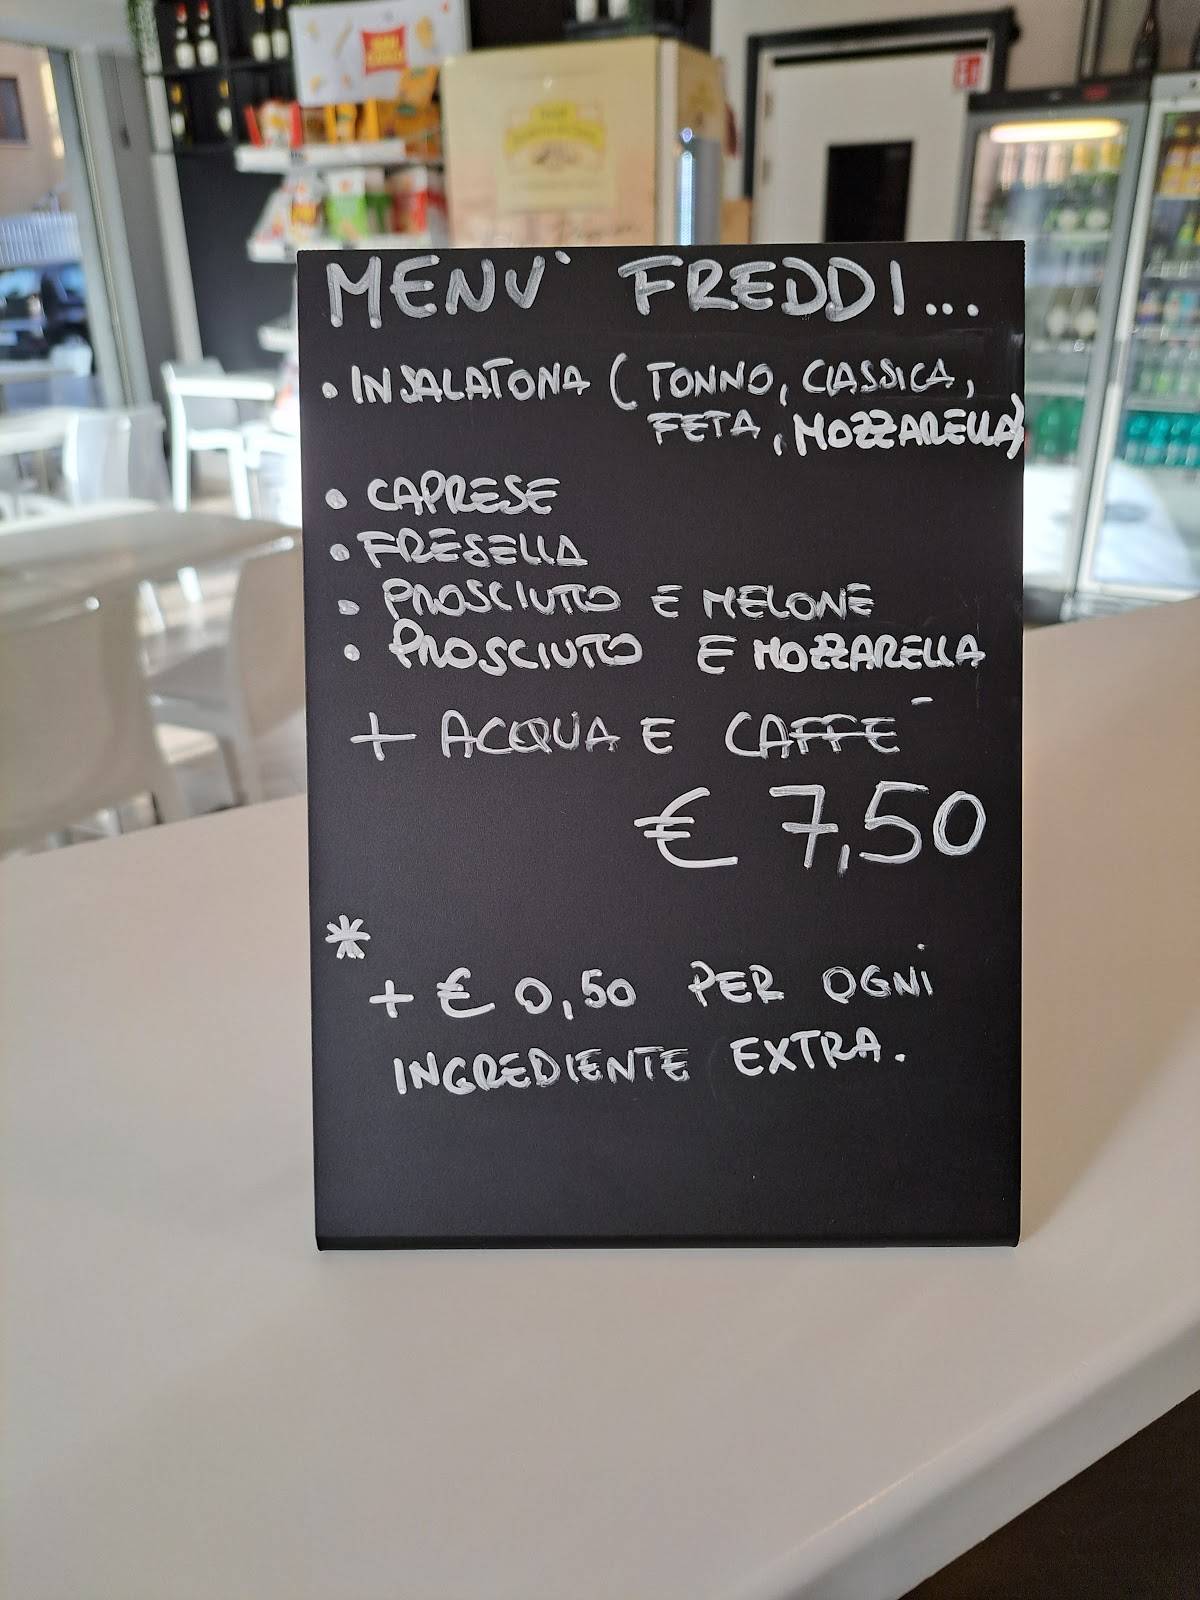 MENU' FREDDI...
• INSALATONA (TONNO, CLASSICA,
FETA, MOZZARELLA)
• CAPRESE
• FRESELLA
• PROSCIUTTO E MELONE
• PROSCIUTTO E MOZZARELLA
+ ACQUA E CAFFE'
€ 7,50
*
+ € 0,50 PER OGNI
INGREDIENTE EXTRA.